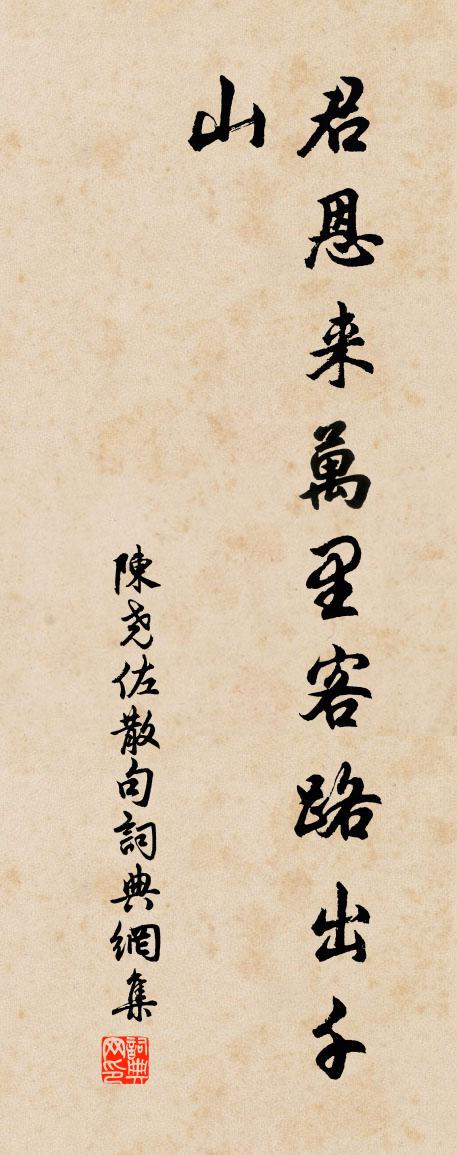 君恩来萬里客路出千
山
陳尧佐散句詞典網集
詞典网印